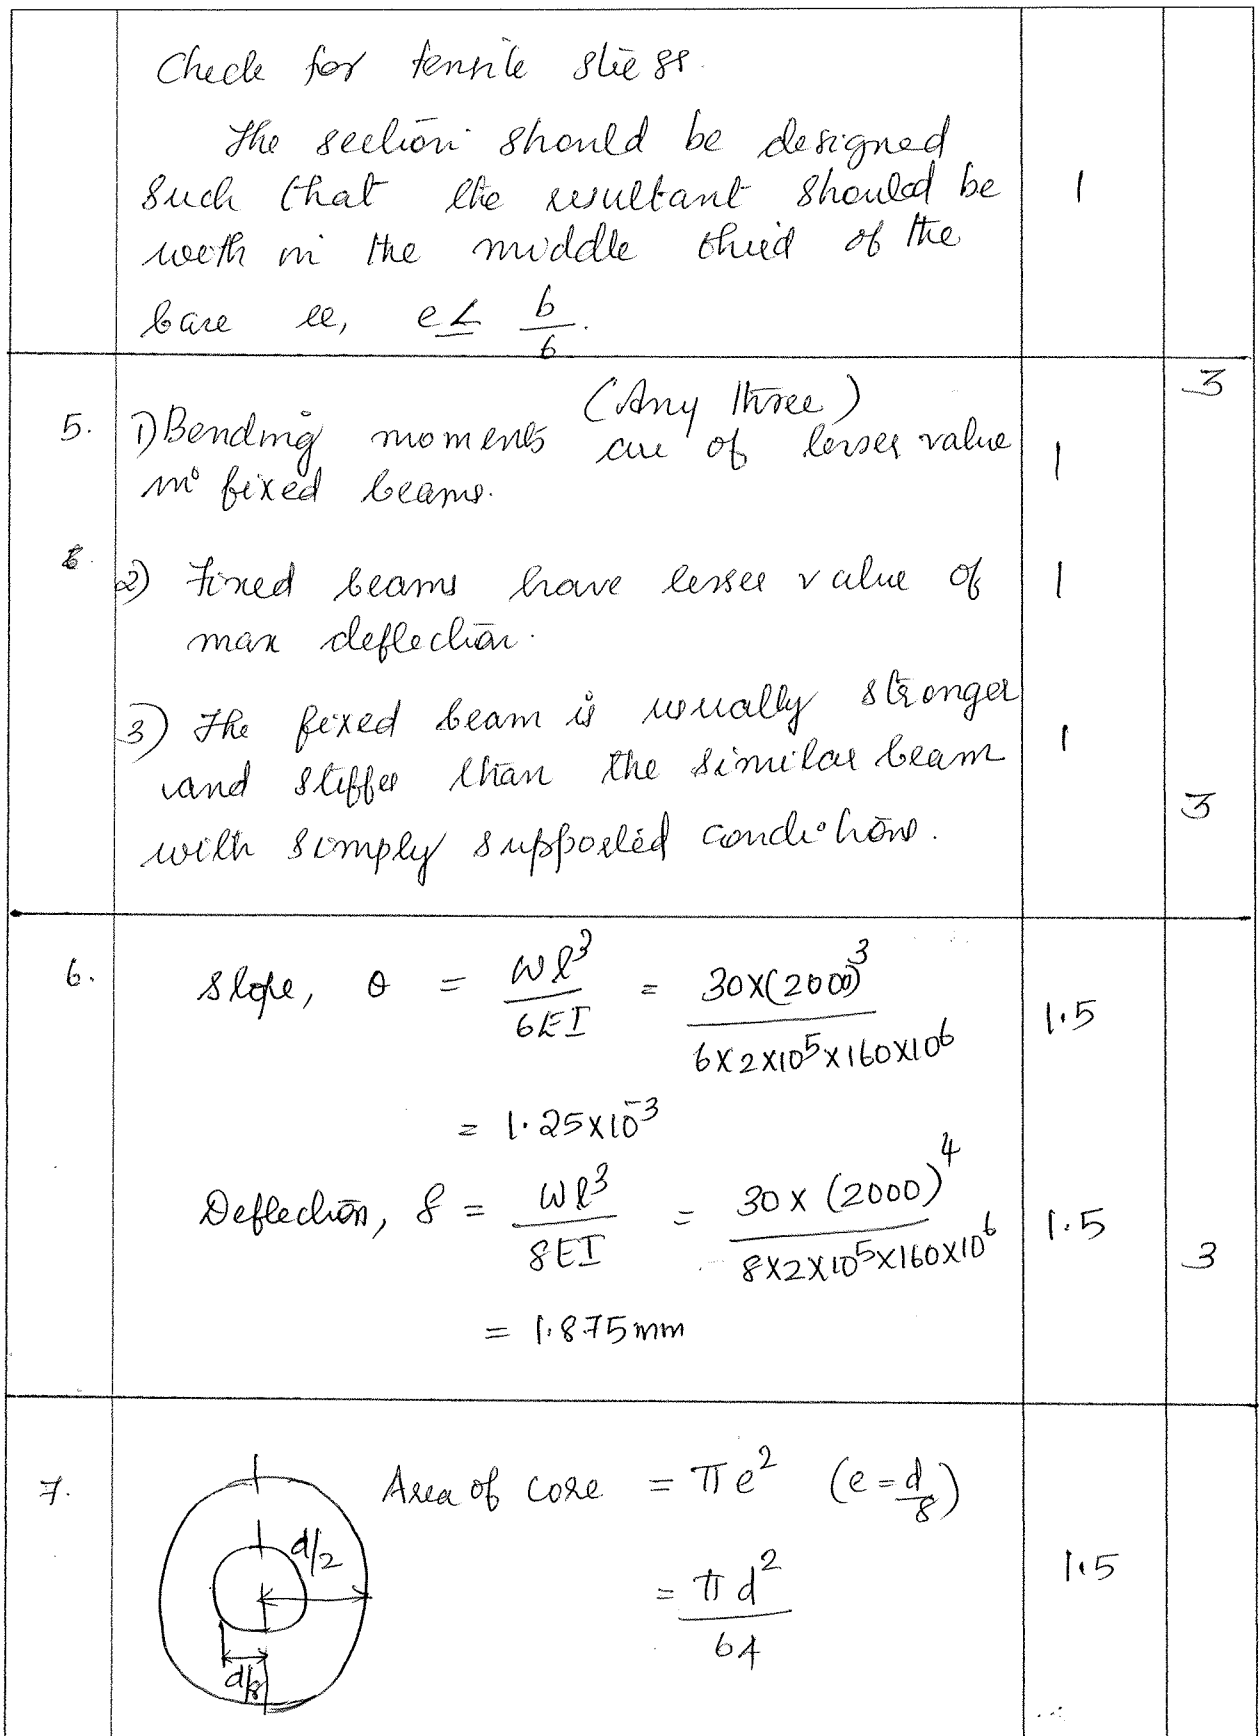 Check for tensile stress.
The section should be designed
such that the resultant should be 1
with in the middle third of the
base ie, e ≤ b/6.
3
(Any three)
5. 1) Bending moments are of lesser value 1
in fixed beams.
2) Fixed beams have lesser value of 1
max deflection.
3) The fixed beam is usually stronger 1
and stiffer than the similar beam
3
with simply supported conditions.
6. Slope, θ = wl³/6EI = 30×(2000)³/6×2×10⁵×160×10⁶ 1.5
= 1.25×10⁻³
Deflection, δ = wl³/8EI = 30×(2000)⁴/8×2×10⁵×160×10⁶ 1.5 3
= 1.875mm
7. Area of core = πe² (e = d/8)
d/2
= πd²/64 1.5
d/8